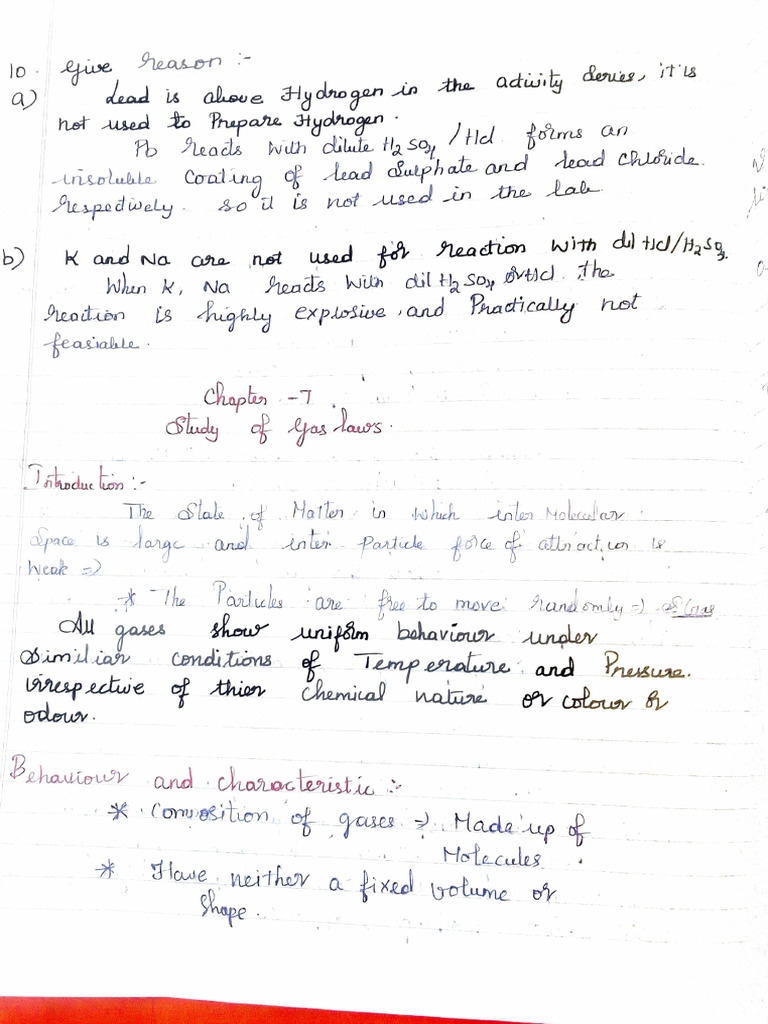 10. Give reason :-
a) Lead is above Hydrogen in the activity series, it is
not used to Prepare Hydrogen.
Pb reacts with dilute H2SO4 / Hcl forms an
insoluble coating of lead Sulphate and lead chloride
respectively. so it is not used in the lab
b) K and Na are not used for reaction with dil Hcl/H2SO4.
When K, Na reacts with dil H2SO4 or Hcl the
reaction is highly explosive and Practically not
feasiable.
Chapter -7
Study of Gas laws.
Introduction :-
The State of Matter in which inter Molecular
Space is large and inter Particle force of attraction is
weak =>
* The Particles are free to move randomly =)
All gases show uniform behaviour under
Similiar conditions of Temperature and Pressure.
irrespective of thier chemical nature or colour or
odour.
Behaviour and characteristic :-
* Composition of gases => Made up of
Molecules.
* Have neither a fixed volume or
shape.